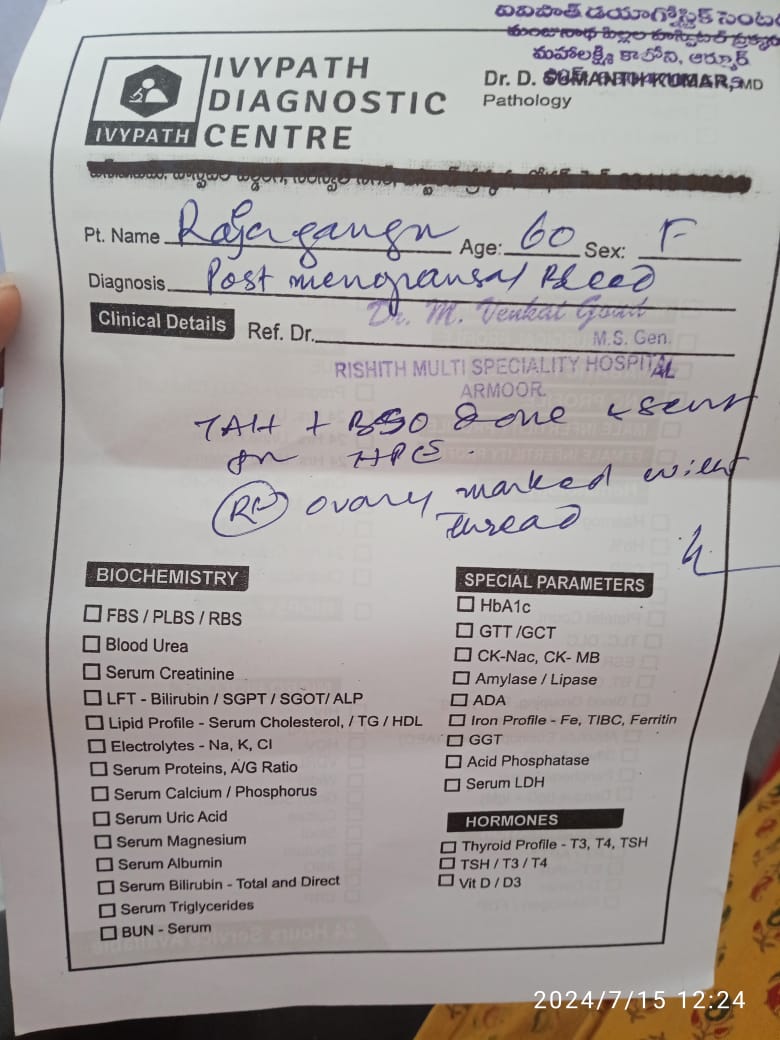 వివిపాత్ డయాగ్నోస్టిక్ సెంటర్
మంజునాథ పిల్లల హాస్పిటల్ ప్రక్కన
మహాలక్ష్మి కాలోని, ఆర్మూర్
IVYPATH
DIAGNOSTIC
CENTRE
IVYPATH
Dr. D. SUMANTH KUMAR, MD
Pathology
Pt. Name Age: 60 Sex: F
Diagnosis. Post Bleed
Clinical Details Ref. Dr. Dr. M. Venkat Goud
M.S. Gen.
RISHITH MULTI SPECIALITY HOSPITAL
ARMOOR.
TAH + BSO done & sent
for HPE.
Rt ovary marked with
thread
BIOCHEMISTRY
FBS / PLBS / RBS
Blood Urea
Serum Creatinine
LFT - Bilirubin / SGPT / SGOT/ ALP
Lipid Profile - Serum Cholesterol, / TG / HDL
Electrolytes - Na, K, Cl
Serum Proteins, A/G Ratio
Serum Calcium / Phosphorus
Serum Uric Acid
Serum Magnesium
Serum Albumin
Serum Bilirubin - Total and Direct
Serum Triglycerides
BUN - Serum
SPECIAL PARAMETERS
HbA1c
GTT /GCT
CK-Nac, CK- MB
Amylase / Lipase
ADA
Iron Profile - Fe, TIBC, Ferritin
GGT
Acid Phosphatase
Serum LDH
HORMONES
Thyroid Profile - T3, T4, TSH
TSH / T3 / T4
Vit D / D3
2024/7/15 12:24